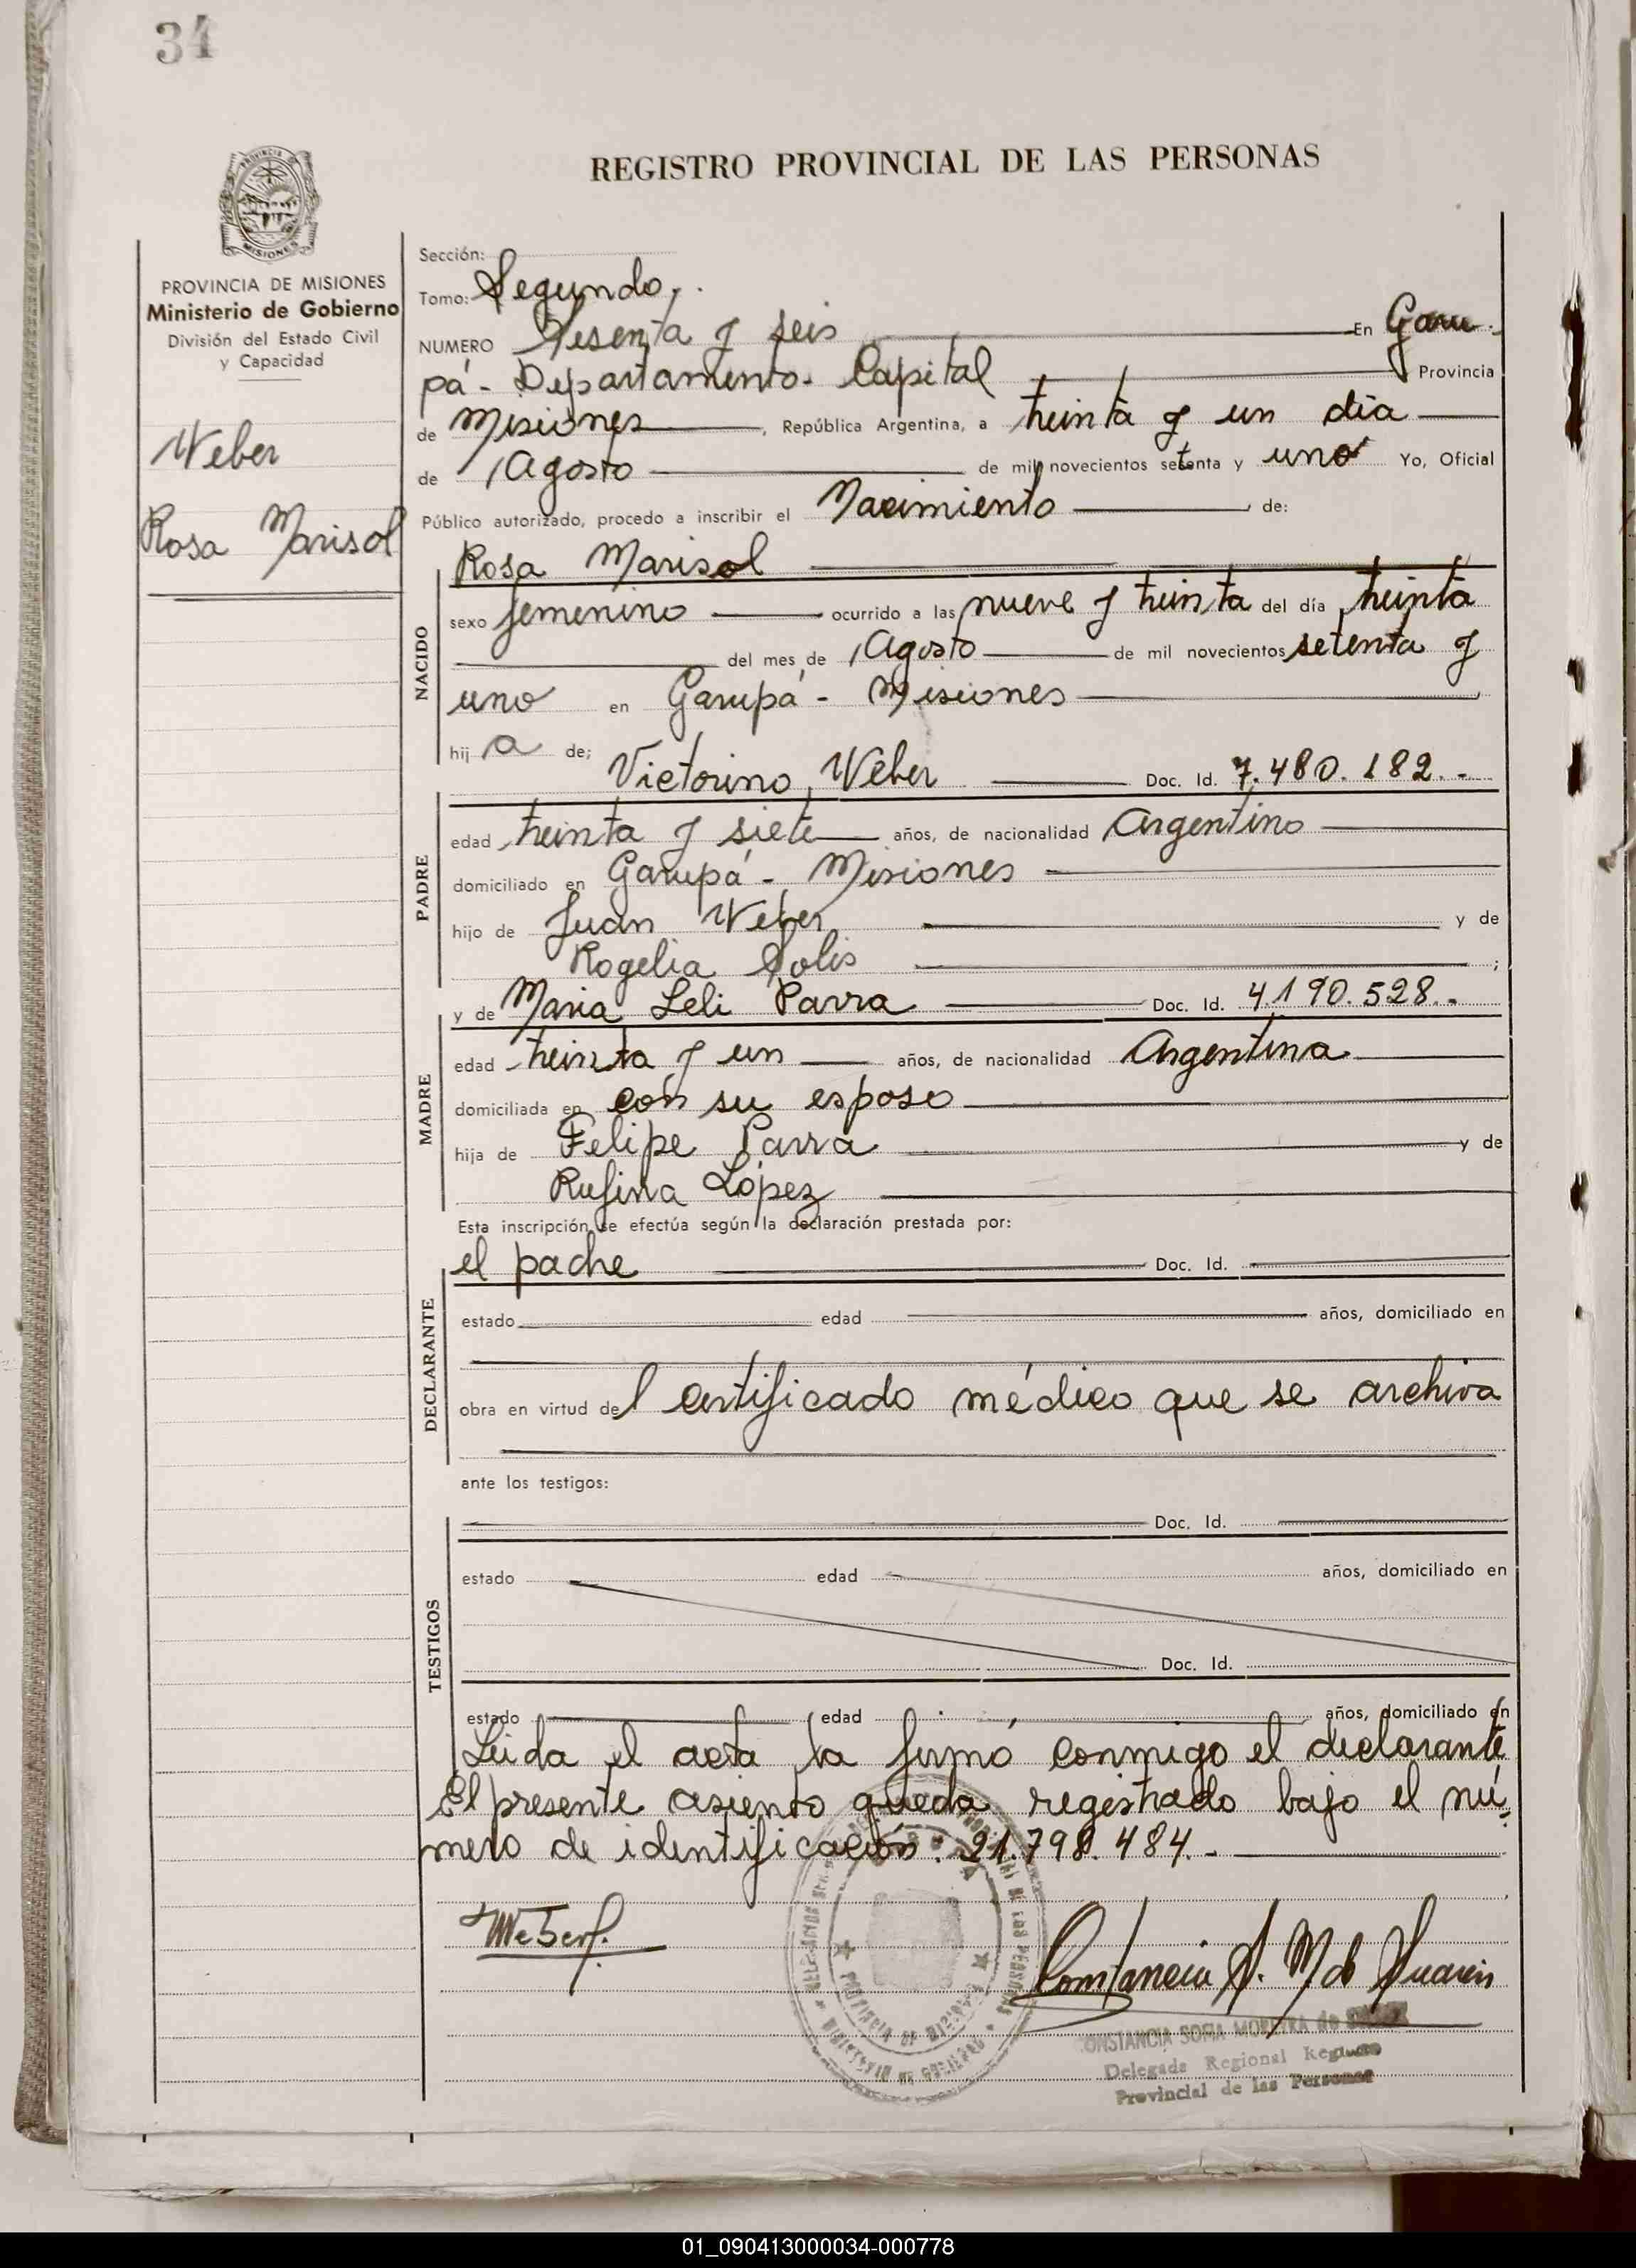 34
REGISTRO PROVINCIAL DE LAS PERSONAS
PROVINCIA DE
MISIONES
PROVINCIA DE MISIONES
Ministerio de Gobierno
División del Estado Civil
y Capacidad
Weber
Rosa Marisol
Sección:
Tomo: Segundo.
NUMERO Sesenta y seis En Garu-
pá - Departamento - Capital Provincia
de Misiones, República Argentina, a treinta y un día
de Agosto de mil novecientos setenta y uno Yo, Oficial
Público autorizado, procedo a inscribir el Nacimiento de:
Rosa Marisol
NACIDO
sexo femenino ocurrido a las nueve y treinta del día treinta
del mes de Agosto de mil novecientos setenta y
uno en Garupá - Misiones
hij a de; Victorino Weber Doc. Id. 7.480.182.-
PADRE
edad treinta y siete años, de nacionalidad Argentino
domiciliado en Garupá - Misiones
hijo de Juan Weber y de
Rogelia Solis ;
y de Maria Leli Parra Doc. Id. 4190.528.-
MADRE
edad treinta y un años, de nacionalidad Argentina
domiciliada en con su esposo
hija de Felipe Parra y de
Rufina López
Esta inscripción se efectúa según la declaración prestada por:
el padre Doc. Id.
DECLARANTE
estado edad años, domiciliado en
obra en virtud del certificado médico que se archiva
ante los testigos:
Doc. Id.
TESTIGOS
estado edad años, domiciliado en
Doc. Id.
estado edad años, domiciliado en
Leida el acta la firmó conmigo el declarante
El presente asiento queda registrado bajo el nú-
mero de identificación: 21.798.484.-
Weber
Constancia S. M de Suarez
CONSTANCIA SOFIA MOREYRA de
Delegada Regional Registro
Provincial de las Personas
PROVINCIA DE MISIONES
MINISTERIO DE GOBIERNO
01_090413000034-000778